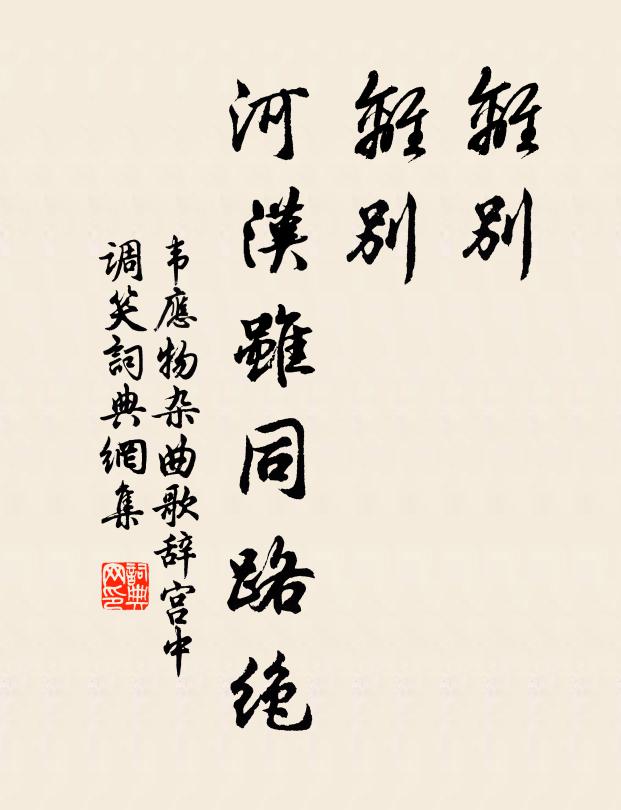 離別
離別
河漢雖同路绝
韦應物杂曲歌辞宫中
调笑詞典網集
詞典网印